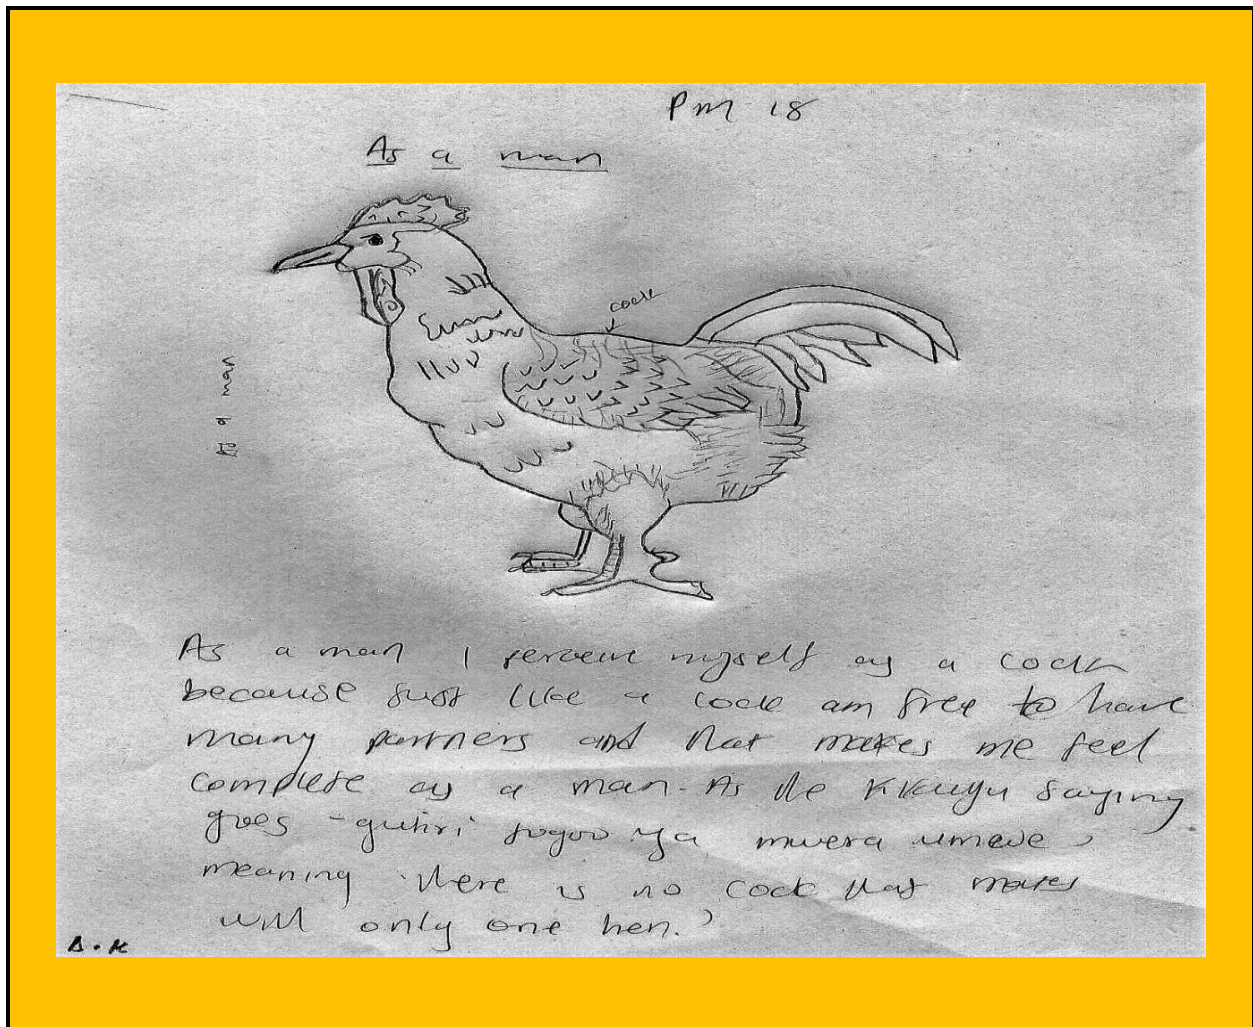 PM 18
As a man
cock
As a man
As a man I perceive myself as a cock
because just like a cock am free to have
many partners and that makes me feel
complete as a man. As the Kikuyu saying
goes - gutiri jogoo ya mwera umwe,
meaning 'there is no cock that mates
with only one hen.'
B.K